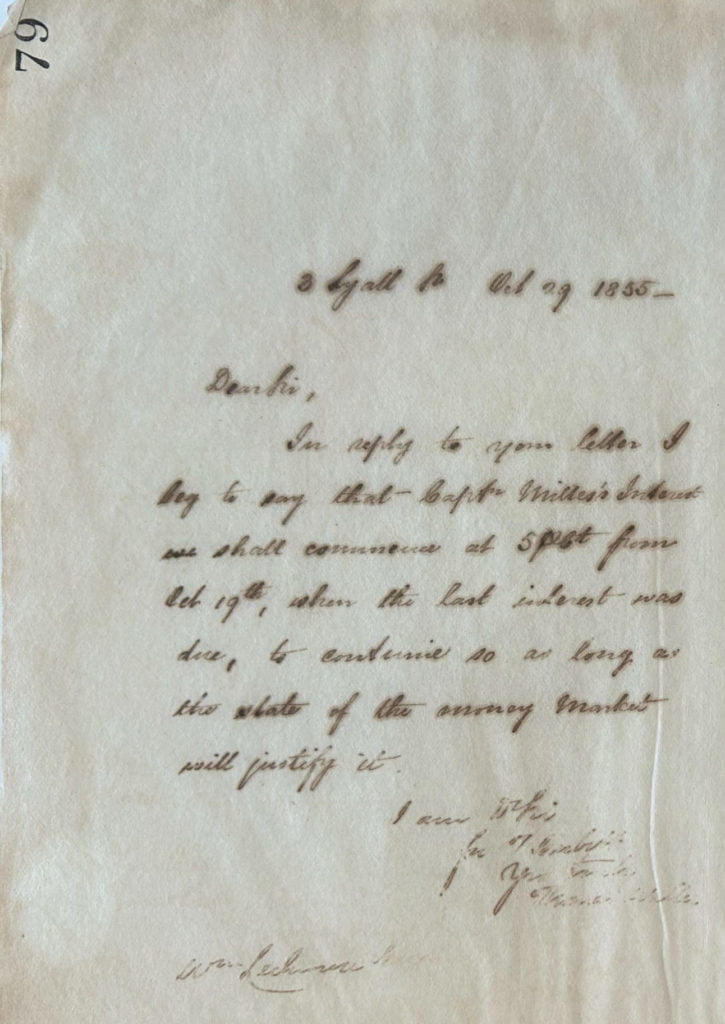 79
3 Lyall St Oct 29 1855 —
Dear Sir,
In reply to your letter I
beg to say that Captn Milles's Interest
we shall commence at 5 P Ct from
Oct 19th, when the last interest was
due, to continue so as long as
the state of the money Market
will justify it.
I am Dr Sir
for
Yrs
Wm Lechmere